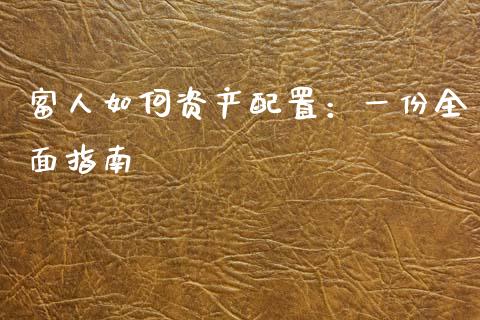 富人如何资产配置：一份全
面指南